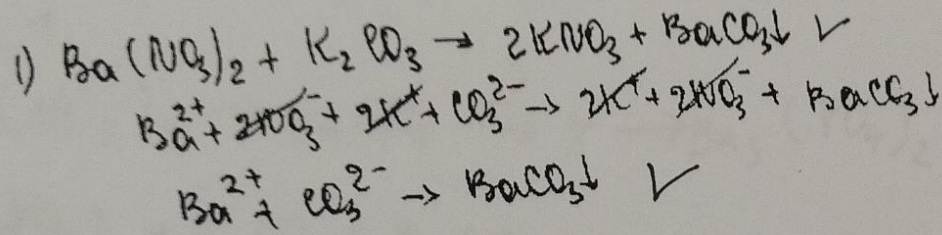 1) Ba(NO₃)₂ + K₂CO₃ → 2KNO₃ + BaCO₃↓ ✓
Ba²⁺ + 2NO₃⁻ + 2K⁺ + CO₃²⁻ → 2K⁺ + 2NO₃⁻ + BaCO₃↓
Ba²⁺ + CO₃²⁻ → BaCO₃↓ ✓